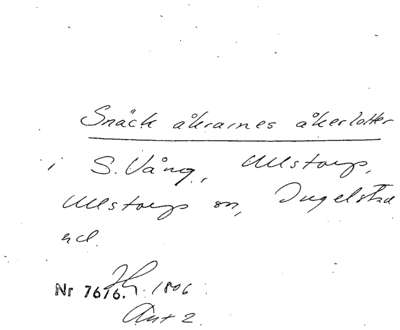 Snäck åkrarnes åkerlotter
i S. Vång, Ullstorp,
Ullstorp sn, Ingelstad
hd.
Nr 7676. 1806
Akt 2